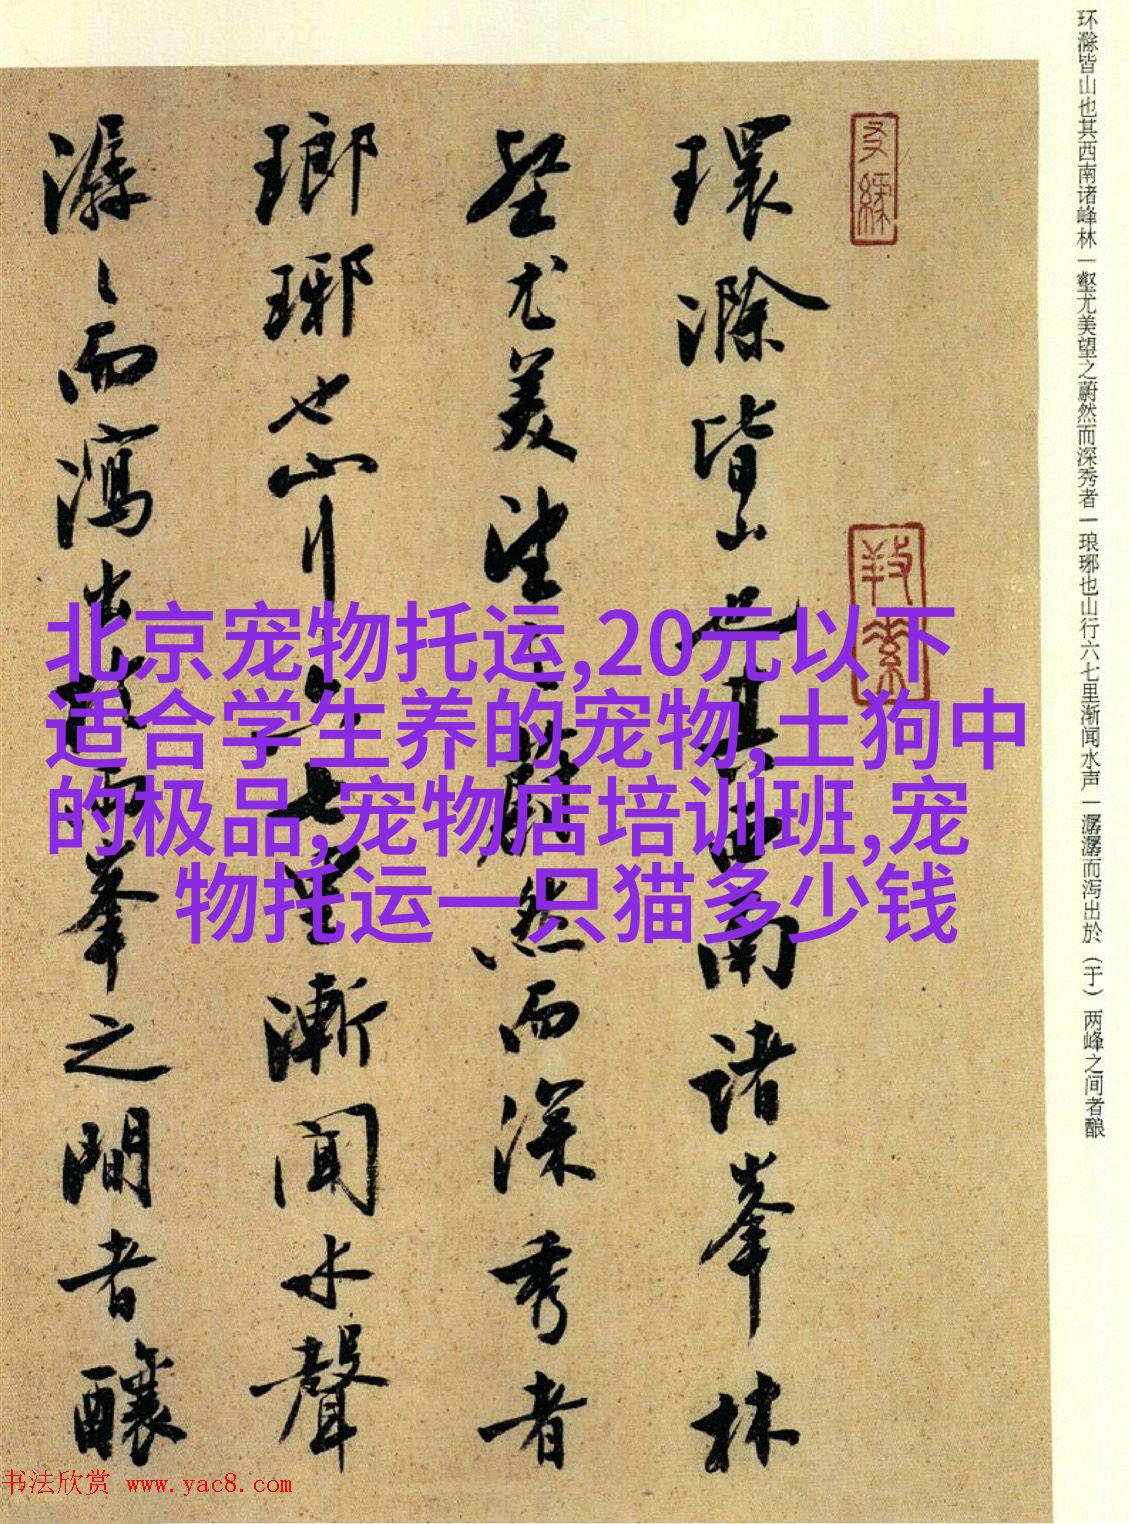 环滁皆山也其西南诸峰林一壑尤美望之蔚然而深秀者一琅琊也山行六七里渐闻水声一潺潺而泻出於（于）两峰之间者酿
環滁皆山也其西南諸峯林
壑尤美望之蔚然而深秀者
瑯琊也山行六七里漸聞水聲
潺〻而瀉出於兩峯之間者釀
北京宠物托运,20元以下
适合学生养的宠物,土狗中
的极品,宠物店培训班,宠
物托运一只猫多少钱
书法欣赏 www.yac8.com